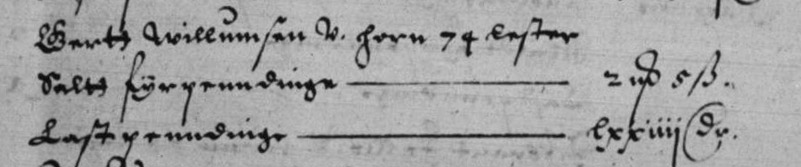 Gertt Willumsen V. Horn 74 lester
Saltt fyrpenndinge 2 ұ 5 ß.
Lastpenndinge lxxiiij dr.